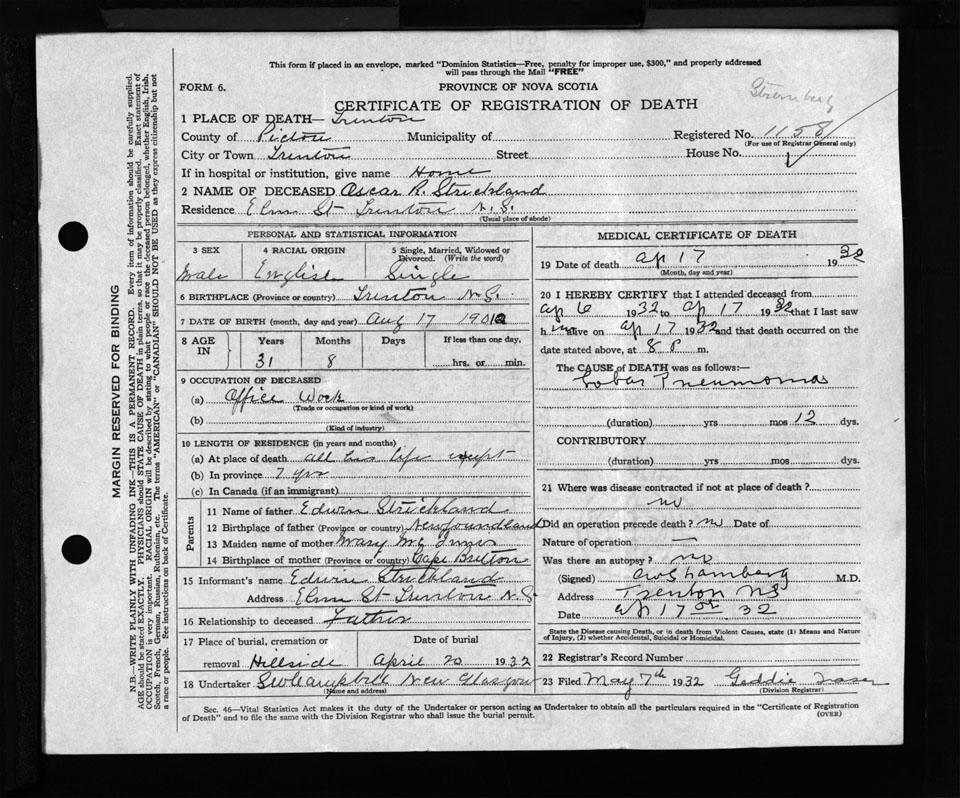 This form if placed in an envelope, marked "Dominion Statistics—Free, penalty for improper use, $300," and properly addressed
will pass through the Mail "FREE"
FORM 6.
PROVINCE OF NOVA SCOTIA
CERTIFICATE OF REGISTRATION OF DEATH
1 PLACE OF DEATH— Trenton
County of Pictou Municipality of Registered No. 1158
(For use of Registrar General only)
City or Town Trenton Street House No.
If in hospital or institution, give name Home
2 NAME OF DECEASED Oscar R. Strickland
Residence Elm St Trenton N.S.
(Usual place of abode)
PERSONAL AND STATISTICAL INFORMATION
3 SEX 4 RACIAL ORIGIN 5 Single, Married, Widowed or
Divorced. (Write the word)
Male English Single
6 BIRTHPLACE (Province or country) Trenton N.S.
7 DATE OF BIRTH (month, day and year) Aug 17
8 AGE IN Years Months Days If less than one day,
31 8 hrs. or min.
9 OCCUPATION OF DECEASED
(a) Office Work
(Trade or occupation or kind of work)
(b)
(Kind of industry)
10 LENGTH OF RESIDENCE (in years and months)
(a) At place of death all his life except
(b) In province 7 yrs
(c) In Canada (if an immigrant)
Parents
11 Name of father Edwin Strickland
12 Birthplace of father (Province or country) Newfoundland
13 Maiden name of mother Mary Mc
14 Birthplace of mother (Province or country) Cape Breton
15 Informant's name Edwin Strickland
Address Elm St Trenton N.S.
16 Relationship to deceased Father
17 Place of burial, cremation or Date of burial
removal Hillside April 20 1932
18 Undertaker S W Campbell New Glasgow
(Name and address)
MEDICAL CERTIFICATE OF DEATH
19 Date of death ap 17 1932
(Month, day and year)
20 I HEREBY CERTIFY that I attended deceased from
ap 6 1932 to ap 17 1932 that I last saw
h im alive on ap 17 1932 and that death occurred on
date stated above, at 8 P m.
The CAUSE OF DEATH was as follows:—
Lobar Pneumonia
(duration) yrs mos 12 dys.
CONTRIBUTORY
(duration) yrs mos dys.
21 Where was disease contracted if not at place of death?
no
Did an operation precede death? no Date of
Nature of operation —
Was there an autopsy? no
(Signed) M.D.
Address Trenton NS
Date ap 17 32
State the Disease causing Death, or in death from Violent Causes, state (1) Means and Nature
of Injury, (2) whether Accidental, Suicidal or Homicidal.
22 Registrar's Record Number
23 Filed May 7th 1932 Geddie Fraser
(Division Registrar)
Sec. 46—Vital Statistics Act makes it the duty of the Undertaker or person acting as Undertaker to obtain all the particulars required in the "Certificate of Registration
of Death" and to file the same with the Division Registrar who shall issue the burial permit.
(OVER)
MARGIN RESERVED FOR BINDING
N.B.—WRITE PLAINLY WITH UNFADING INK—THIS IS A PERMANENT RECORD. Every item of information should be carefully supplied.
AGE should be stated EXACTLY. PHYSICIANS should STATE CAUSE OF DEATH in plain terms, so that it may be properly classified. Exact statement of
OCCUPATION is very important. RACIAL ORIGIN will be described by stating to what people or race the deceased person belonged, whether English, Irish,
Scotch, French, German, Russian, Ruthenian, etc. The terms "AMERICAN" or "CANADIAN" SHOULD NOT BE USED as they express citizenship but not
a race or people. See instructions on back of Certificate.